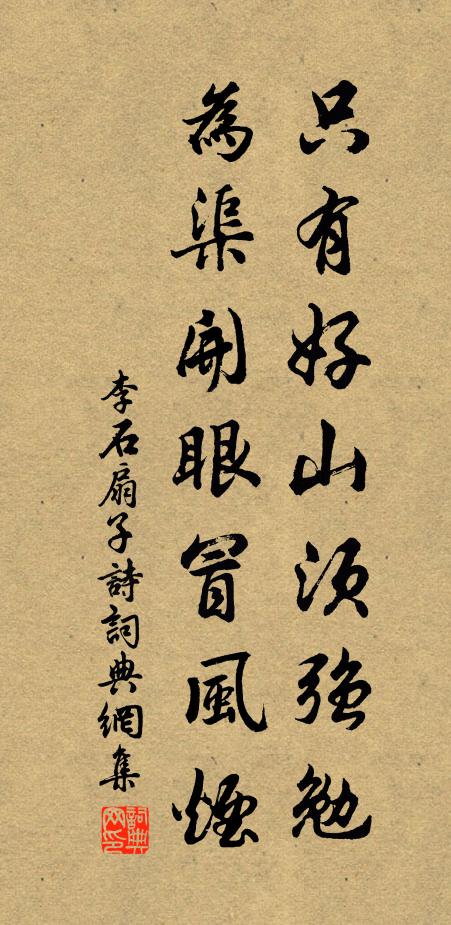 只有好山須強勉
為渠開眼冒風煙
李石扇子詩詞典網集
詞典網印